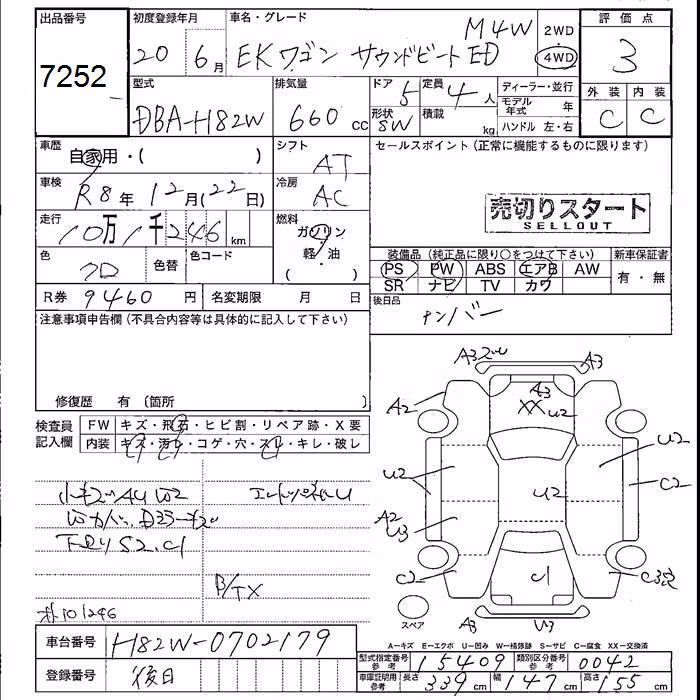 出品番号
7252
初度登録年月
20 6月
車名・グレード
EKワゴン サウンドビート ED M4W
2WD
4WD
評価点
3
外装 内装
C C
型式
DBA-H82W
排気量
660 cc
ドア 5
形状 SW
定員 4人
積載 kg
ディーラー・並行
モデル年式 年
ハンドル 左・右
車歴
自家用・( )
車検
R8年 12月(22日)
走行
10万1千246 km
色
色替
色コード
シフト
AT
冷房
AC
燃料
ガソリン
軽・油
R券 9460円
名変期限 月 日
セールスポイント(正常に機能するものに限ります)
売切りスタート
SELLOUT
装備品(純正品に限り○をつけて下さい)
PS PW ABS エアB AW
SR ナビ TV カワ
新車保証書
有・無
後日品
ナンバー
注意事項申告欄(不具合内容等は具体的に記入して下さい)
修復歴 有〔箇所 〕
検査員記入欄
FW キズ・飛石・ヒビ割・リペア跡・X要
内装 キズ・汚レ・コゲ・穴・スレ・キレ・破レ
下回りS2.C1
101246
A3
A3
A2
A3
XX
U2
U2
U2
U2
C2
A2
U3
C2
C1
A3
U3
スペア
A=キズ E=エクボ U=凹み W=補修跡 S=サビ C=腐食 XX=交換済
車台番号
H82W-0702179
登録番号
後日
型式指定番号 参考 15409
類別区分番号 参考 0042
車庫証明用 参考 長さ 339cm 幅 147cm 高さ 155cm